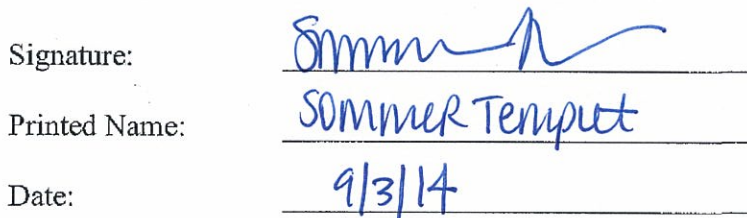 Signature:
Printed Name: SOMMER Temput
Date: 9/3/14